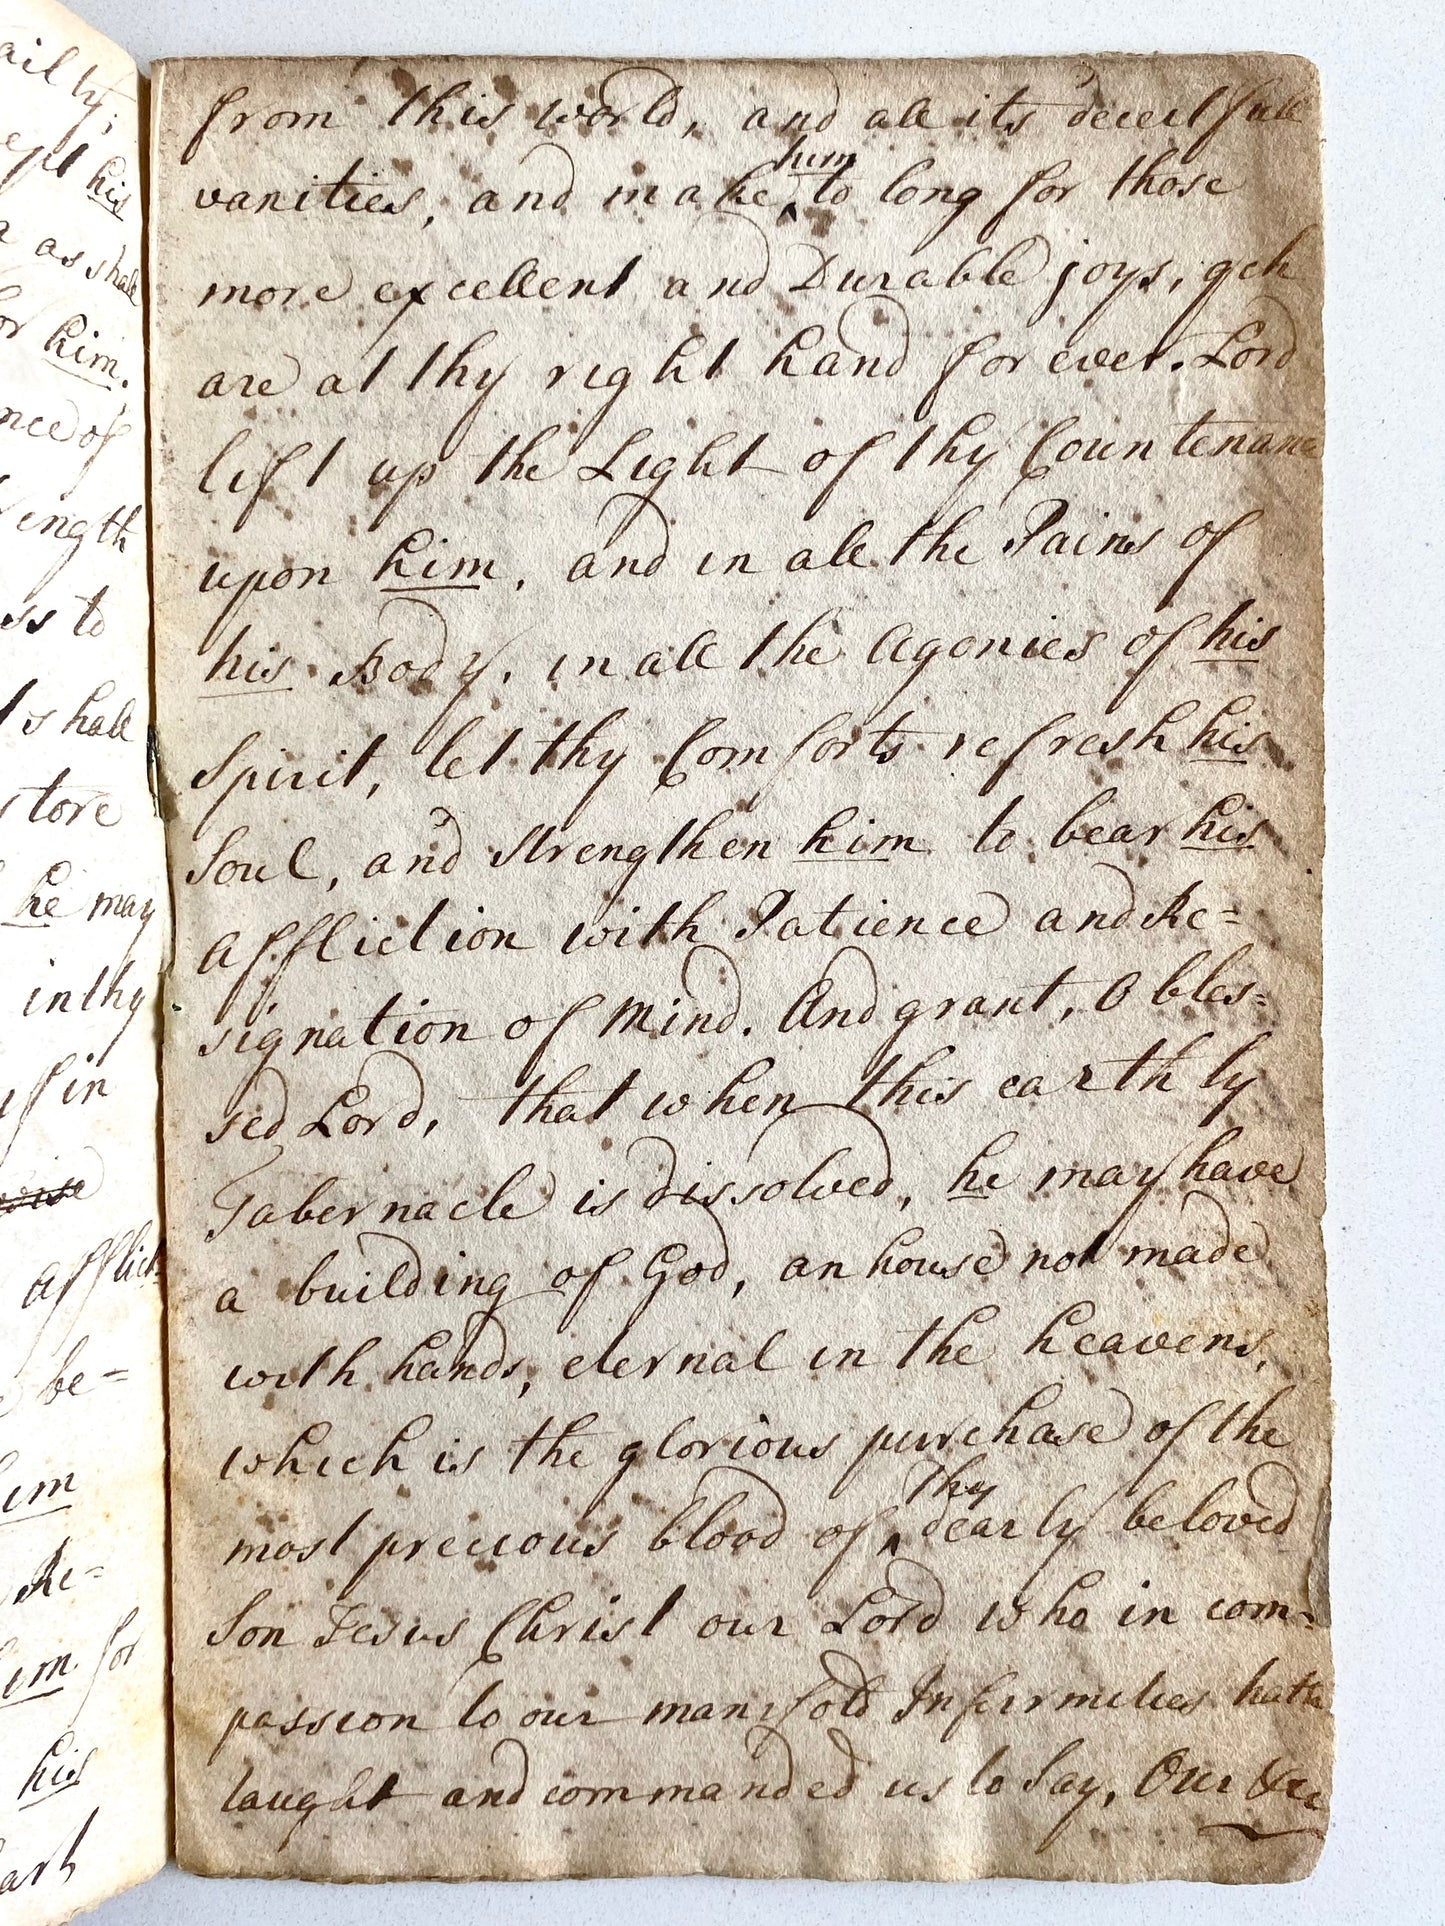 ailty;
his
as shall
or him.
nce of
ength
ss to
shall
store
he may
in thy
if in
afflict
be=
him
Re=
him for
his
from this world, and all its deceitfull
vanities, and make ‸him to long for those
more excellent and Durable joys, qch
are at thy right hand for ever. Lord
lift up the Light of thy Countenance
upon him, and in all the Pains of
his Body, in all the Agonies of his
Spirit, let thy Comforts refresh his
Soul, and strengthen him to bear his
Affliction with Patience and Re=
signation of Mind. And grant, O bles=
sed Lord, that when this earthly
Tabernacle is dissolved, he may have
a building of God, an house not made
with hands, eternal in the heavens,
which is the glorious purchase of the
most precious blood of ‸thy dearly beloved
Son Jesus Christ our Lord who in com=
passion to our manifold Infirmities hath
taught and commanded us to Say, Our &c